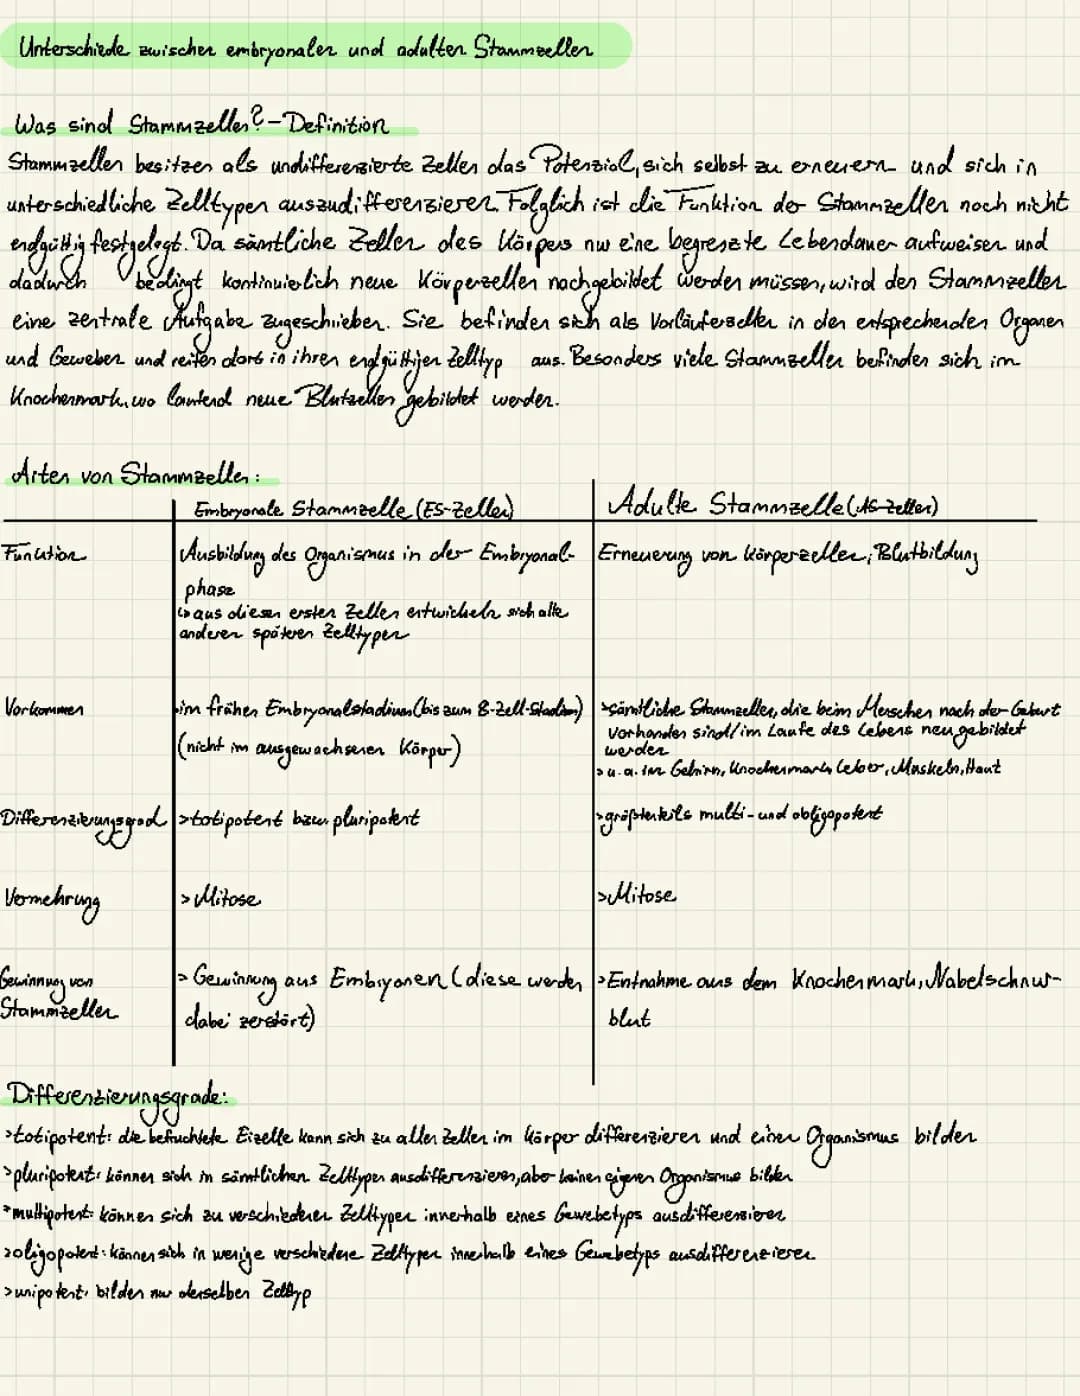 Unterschiede zwischen embryonalen und adulten Stammzellen
Was sind Stammzellen? - Definition
Stammzellen besitzen als undifferenzierte Zellen das Potenzial, sich selbst zu erneuern und sich in
unterschiedliche Zelltypen auszudifferenzieren. Folglich ist die Funktion der Stammzellen noch nicht
endgültig festgelegt. Da sämtliche Zellen des Körpers nur eine begrenzte Lebensdauer aufweisen und
dadurch bedingt kontinuierlich neue Körperzellen nachgebildet werden müssen, wird den Stammzellen
eine zentrale Aufgabe zugeschrieben. Sie befinden sich als Vorläuferzellen in den entsprechenden Organen
und Geweben und reifen dort in ihren endgültigen Zelltyp aus. Besonders viele Stammzellen befinden sich im
Knochenmark, wo laufend neue Blutzellen gebildet werden.
Arten von Stammzellen:
Embryonale Stammzelle (ES-Zellen) Adulte Stammzelle (AS-Zellen)
Funktion Ausbildung des Organismus in der Embryonal- Erneuerung von Körperzellen; Blutbildung
phase
↳ aus diesen ersten Zellen entwickeln sich alle
anderen späteren Zelltypen
Vorkommen im frühen Embryonalstadium (bis zum 8-Zell-Stadium) >sämtliche Stammzellen, die beim Menschen nach der Geburt
vorhanden sind/im Laufe des Lebens neu gebildet
(nicht im ausgewachsenen Körper) werden
>u.a. im Gehirn, Knochenmark, Leber, Muskeln, Haut
Differenzierungsgrad >totipotent bzw. pluripotent >größtenteils multi- und obligopotent
Vermehrung >Mitose >Mitose
Gewinnung von >Gewinnung aus Embryonen (diese werden >Entnahme aus dem Knochenmark, Nabelschnur-
Stammzellen dabei zerstört) blut
Differenzierungsgrade:
>totipotent: die befruchtete Eizelle kann sich zu allen Zellen im Körper differenzieren und einen Organismus bilden
>pluripotent: können sich in sämtlichen Zelltypen ausdifferenzieren, aber keinen eigenen Organismus bilden
>multipotent: können sich zu verschiedenen Zelltypen innerhalb eines Gewebetyps ausdifferenzieren
>oligopotent: können sich in wenige verschiedene Zelltypen innerhalb eines Gewebetyps ausdifferenzieren
>unipotent: bilden nur denselben Zelltyp